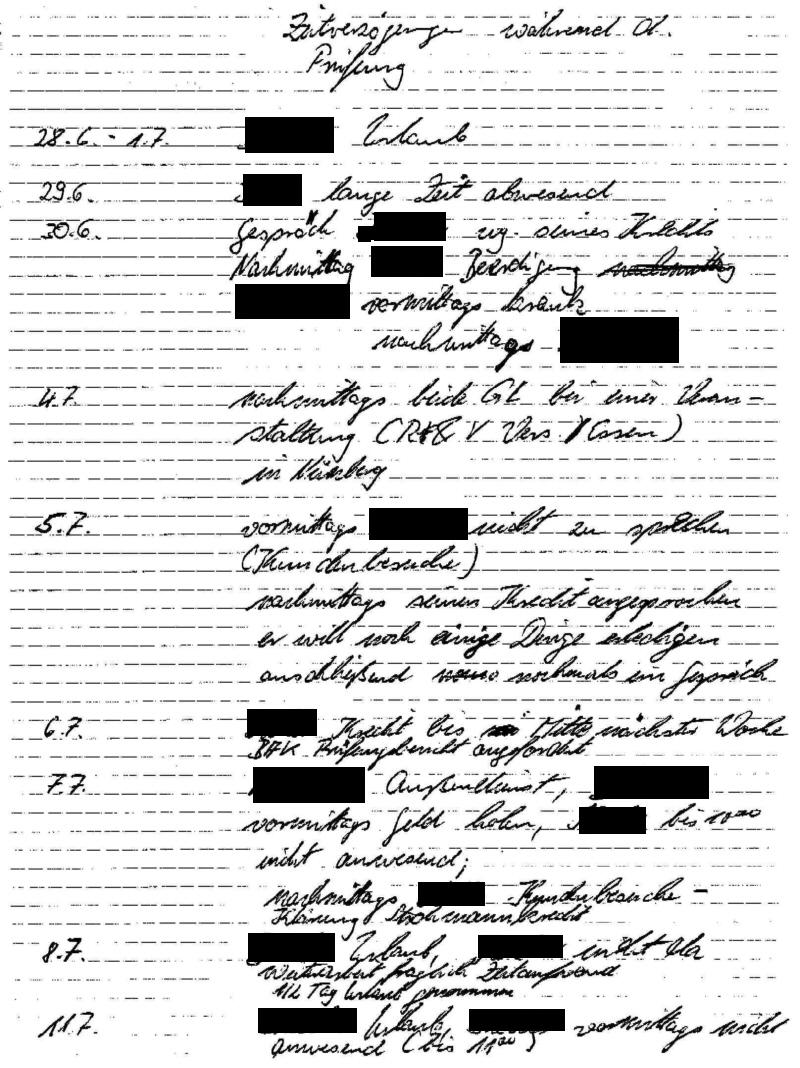 Zeitverzögerungen während d.
Prüfung
28.6. - 1.7. Urlaub
29.6. lange Zeit abwesend
30.6. Gespräch wg. seines Kredits
Nachmittag Beerdigung nachmittag
vormittags krank
nachmittags
4.7. nachmittags beide GL bei einer Veran-
staltung (R+V Vers. / Essen)
in Nürnberg
5.7. vormittags nicht zu sprechen
(Kundenbesuche)
nachmittags seinen Kredit angesprochen
er will noch einige Dinge erledigen
anschließend nochmals ein Gespräch
6.7. Kredit bis Mitte nächster Woche
Prüfungsbericht angefordert
7.7. Außendienst,
vormittags Geld holen, bis 10⁰⁰
nicht anwesend;
nachmittags Kundenbesuche -
Klärung Strohmannkredit
8.7. Urlaub, nicht da
Weiterarbeit fraglich Zeitaufwand
1/2 Tag Urlaub genommen
11.7. Urlaub, vormittags nicht
anwesend (bis 11⁰⁰)